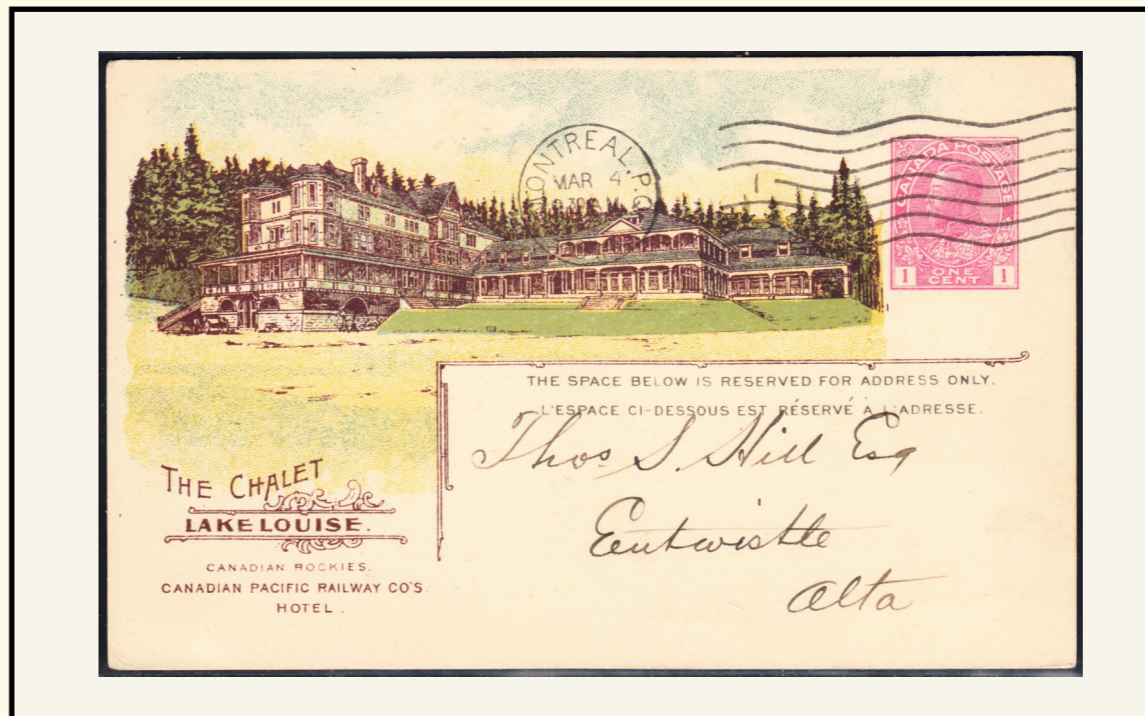 MONTREAL. P.Q.
MAR 4
30 A.M.
CANADA POSTAGE
1 ONE CENT 1
THE SPACE BELOW IS RESERVED FOR ADDRESS ONLY.
L'ESPACE CI-DESSOUS EST RÉSERVÉ À L'ADRESSE.
Thos S. Hill Esq
Entwistle
Alta
THE CHALET
LAKE LOUISE.
CANADIAN ROCKIES.
CANADIAN PACIFIC RAILWAY CO'S.
HOTEL.